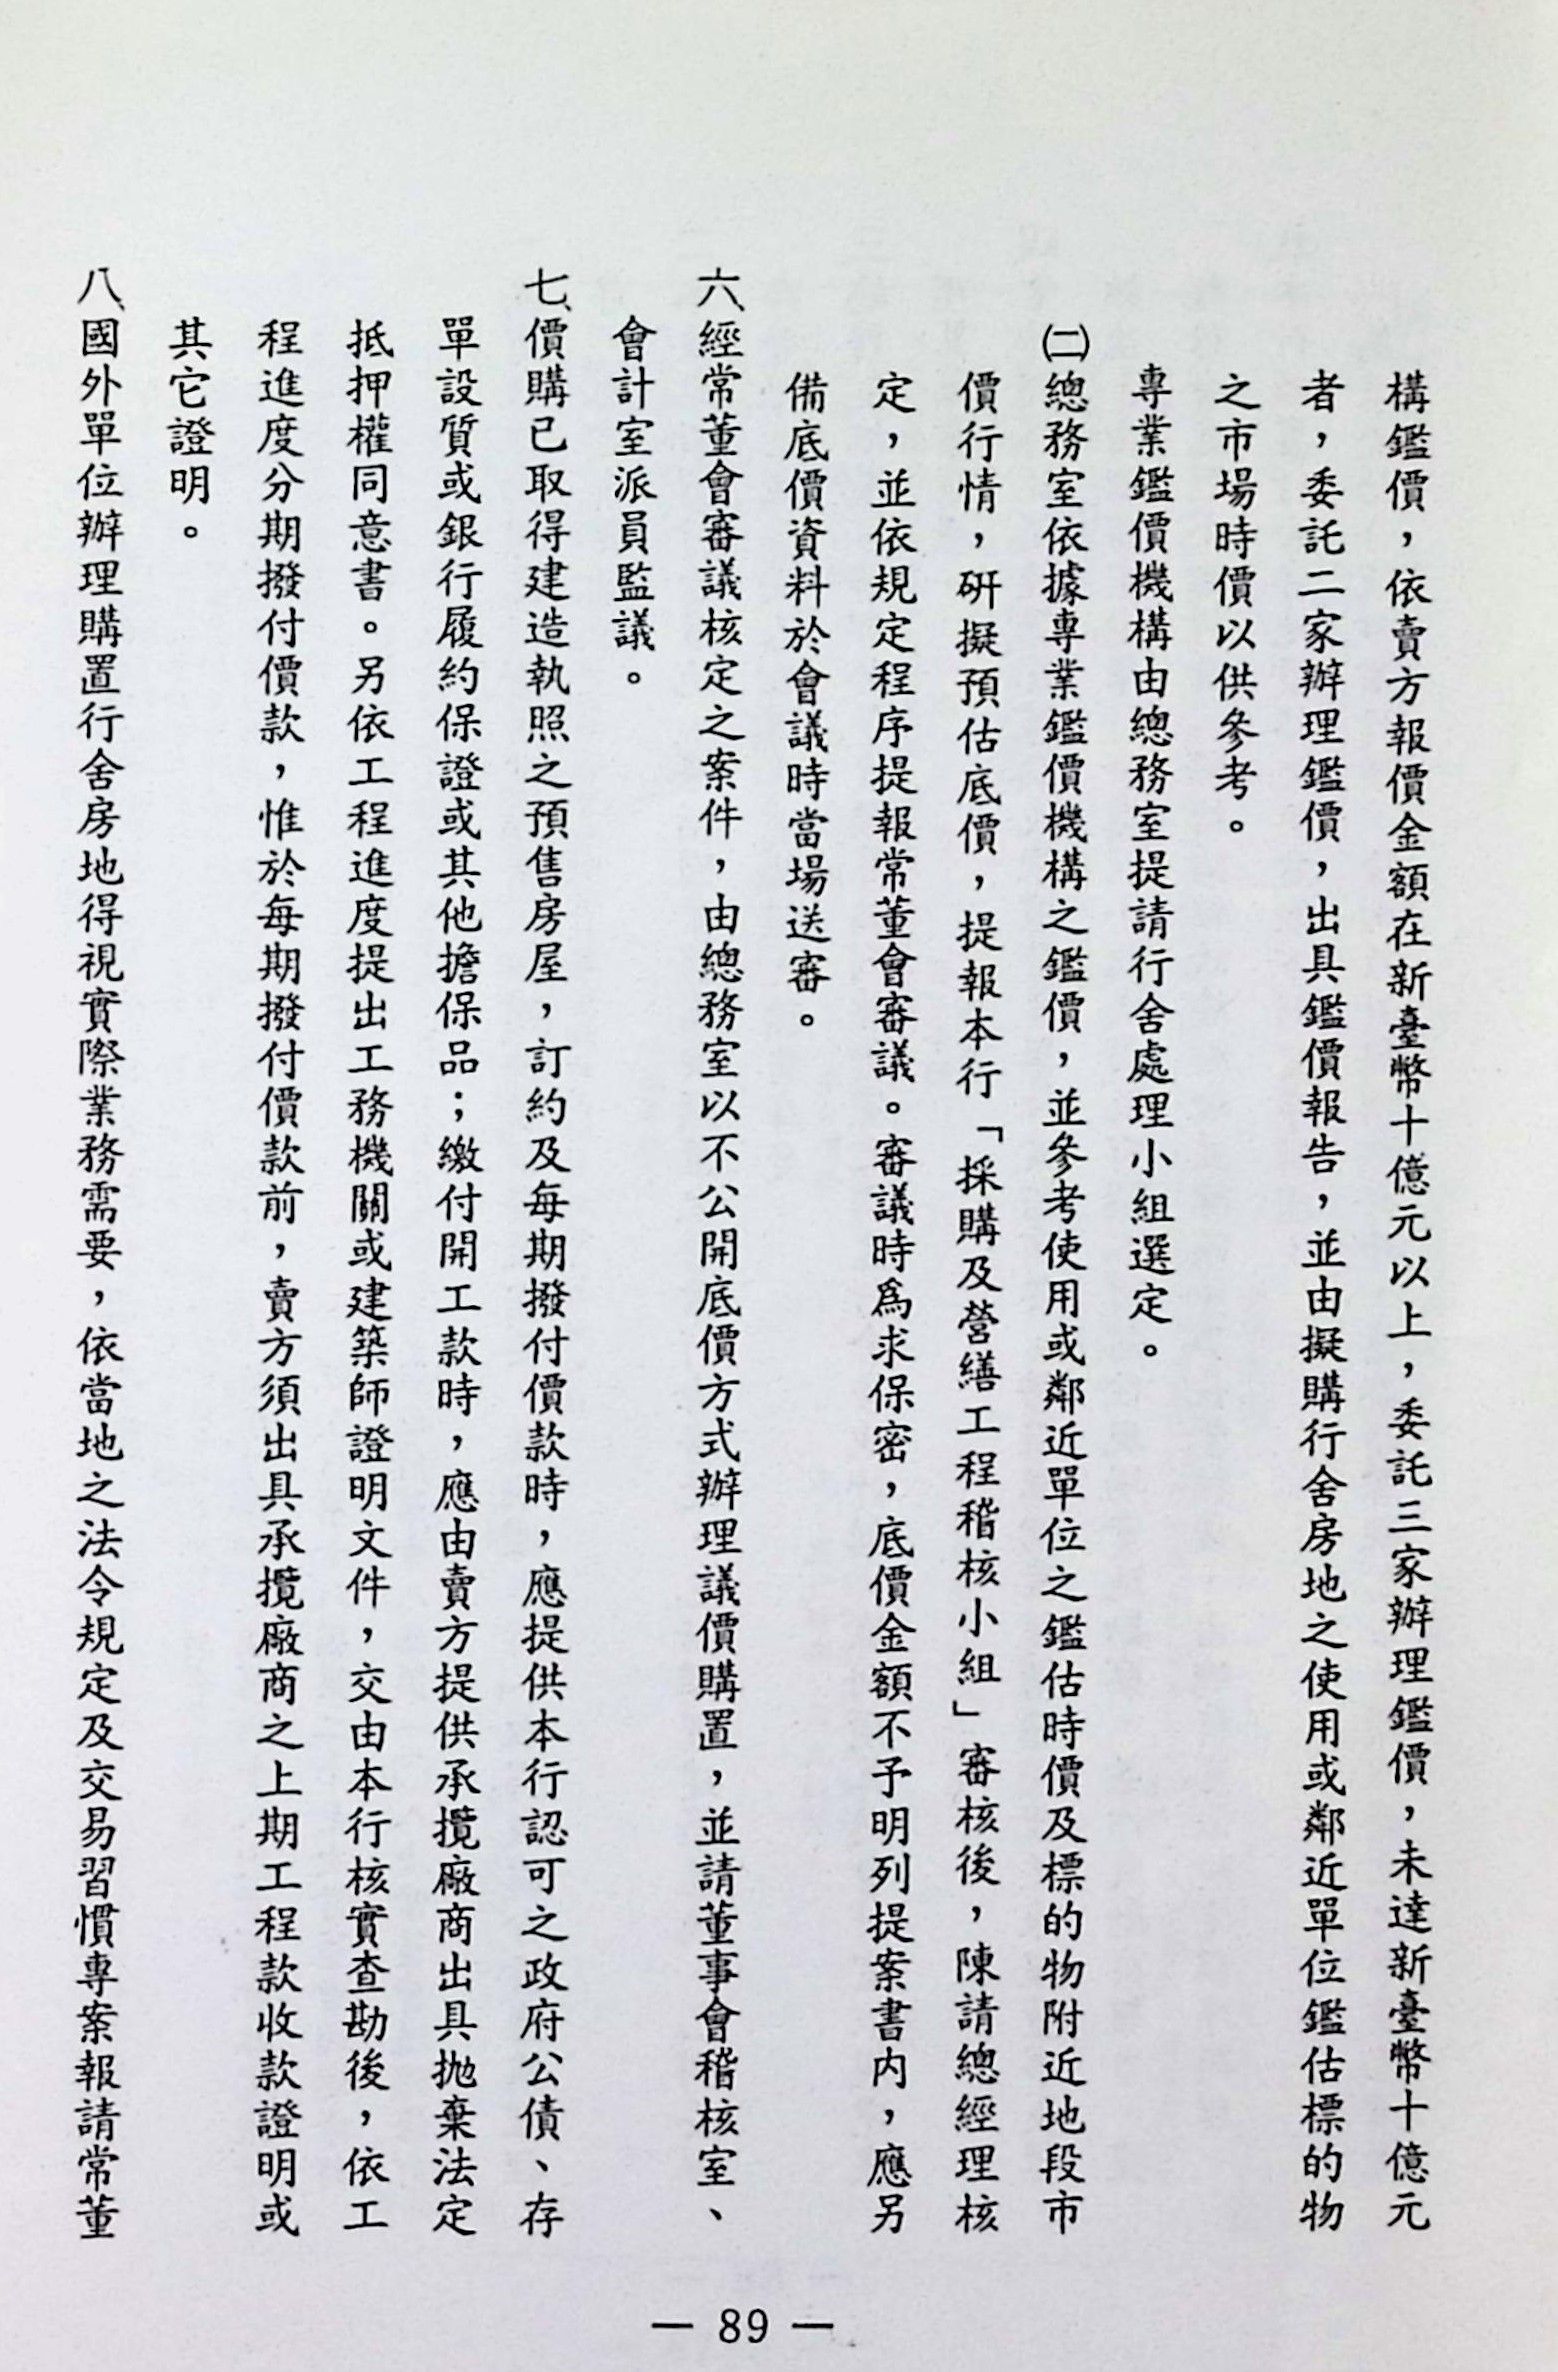 構鑑價，依賣方報價金額在新臺幣十億元以上，委託三家辦理鑑價，未達新臺幣十億元
者，委託二家辦理鑑價，出具鑑價報告，並由擬購行舍房地之使用或鄰近單位鑑估標的物
之市場時價以供參考。
專業鑑價機構由總務室提請行舍處理小組選定。
㈡總務室依據專業鑑價機構之鑑價，並參考使用或鄰近單位之鑑估時價及標的物附近地段市
價行情，研擬預估底價，提報本行「採購及營繕工程稽核小組」審核後，陳請總經理核
定，並依規定程序提報常董會審議。審議時為求保密，底價金額不予明列提案書內，應另
備底價資料於會議時當場送審。
六、經常董會審議核定之案件，由總務室以不公開底價方式辦理議價購置，並請董事會稽核室、
會計室派員監議。
七、價購已取得建造執照之預售房屋，訂約及每期撥付價款時，應提供本行認可之政府公債、存
單設質或銀行履約保證或其他擔保品；繳付開工款時，應由賣方提供承攬廠商出具拋棄法定
抵押權同意書。另依工程進度提出工務機關或建築師證明文件，交由本行核實查勘後，依工
程進度分期撥付價款，惟於每期撥付價款前，賣方須出具承攬廠商之上期工程款收款證明或
其它證明。
八、國外單位辦理購置行舍房地得視實際業務需要，依當地之法令規定及交易習慣專案報請常董
— 89 —